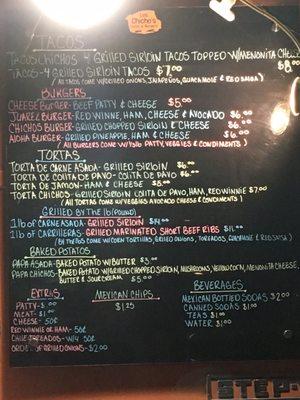 Los
Chicho's
TACOS
TACOS CHICHOS 4 GRILLED SIRLOIN TACOS TOPPED W/MENONITA CHEE
$8.00
TACOS-4 GRILLED SIRLOIN TACOS $7.00
(ALL TACOS COME W/GRILLED ONIONS, JALAPEÑOS, GUACAMOLE & RED SALSA)
BURGERS
CHEESE BURGER-BEEF PATTY & CHEESE $5.00
JUAREZ BURGER-RED WINNIE, HAM, CHEESE & AVOCADO $6.00
CHICHOS BURGER-GRILLED CHOPPED SIRLOIN & CHEESE $6.00
ALOHA BURGER-GRILLED PINEAPPLE, HAM & CHEESE $6.00
(ALL BURGERS COME W/ PATTY, VEGGIES & CONDIMENTS)
TORTAS
TORTA DE CARNE ASADA-GRILLED SIRLOIN $6.00
TORTA DE COLITA DE PAVO-COLITA DE PAVO $6.00
TORTA DE JAMON-HAM & CHEESE $5.00
TORTA CHICHOS-GRILLED SIRLOIN COLITA DE PAVO, HAM, RED WINNIE $7.00
(ALL TORTAS COME W/VEGGIES AVOCADO CHEESE & CONDIMENTS)
GRILLED BY THE lb (POUND)
1 lb of CARNE ASADA GRILLED SIRLOIN $14.00
1 lb of CARRILLERAS GRILLED MARINATED SHORT BEEF RIBS $11.00
(BY THE LBS COME W/CORN TORTILLAS, GRILLED ONIONS, TOREADOS, GUACAMOLE & RED SALSA)
BAKED POTATOS
PAPA ASADA-BAKED POTATO W/BUTTER $3.00
PAPA CHICHOS-BAKED POTATO W/GRILLED CHOPPED SIRLOIN, MUSHROOMS, YELLOW CORN, MENONITA CHEESE,
BUTTER & SOUR CREAM $5.00
EXTRAS
PATTY-$
MEAT-$1.00
CHEESE-50¢
RED WINNIE OR HAM-50¢
CHILE TOREADOS-W/4 50¢
ORDER OF GRILLED ONIONS-$2.00
MEXICAN CHIPS
$1.25
BEVERAGES
MEXICAN BOTTLED SODAS $2.00
CANNED SODAS $1.00
TEAS $1.00
WATER $1.00
STEP